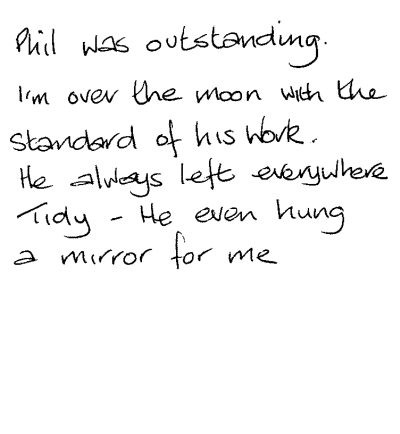 Phil was outstanding.
I'm over the moon with the
standard of his work.
He always left everywhere
Tidy - He even hung
a mirror for me